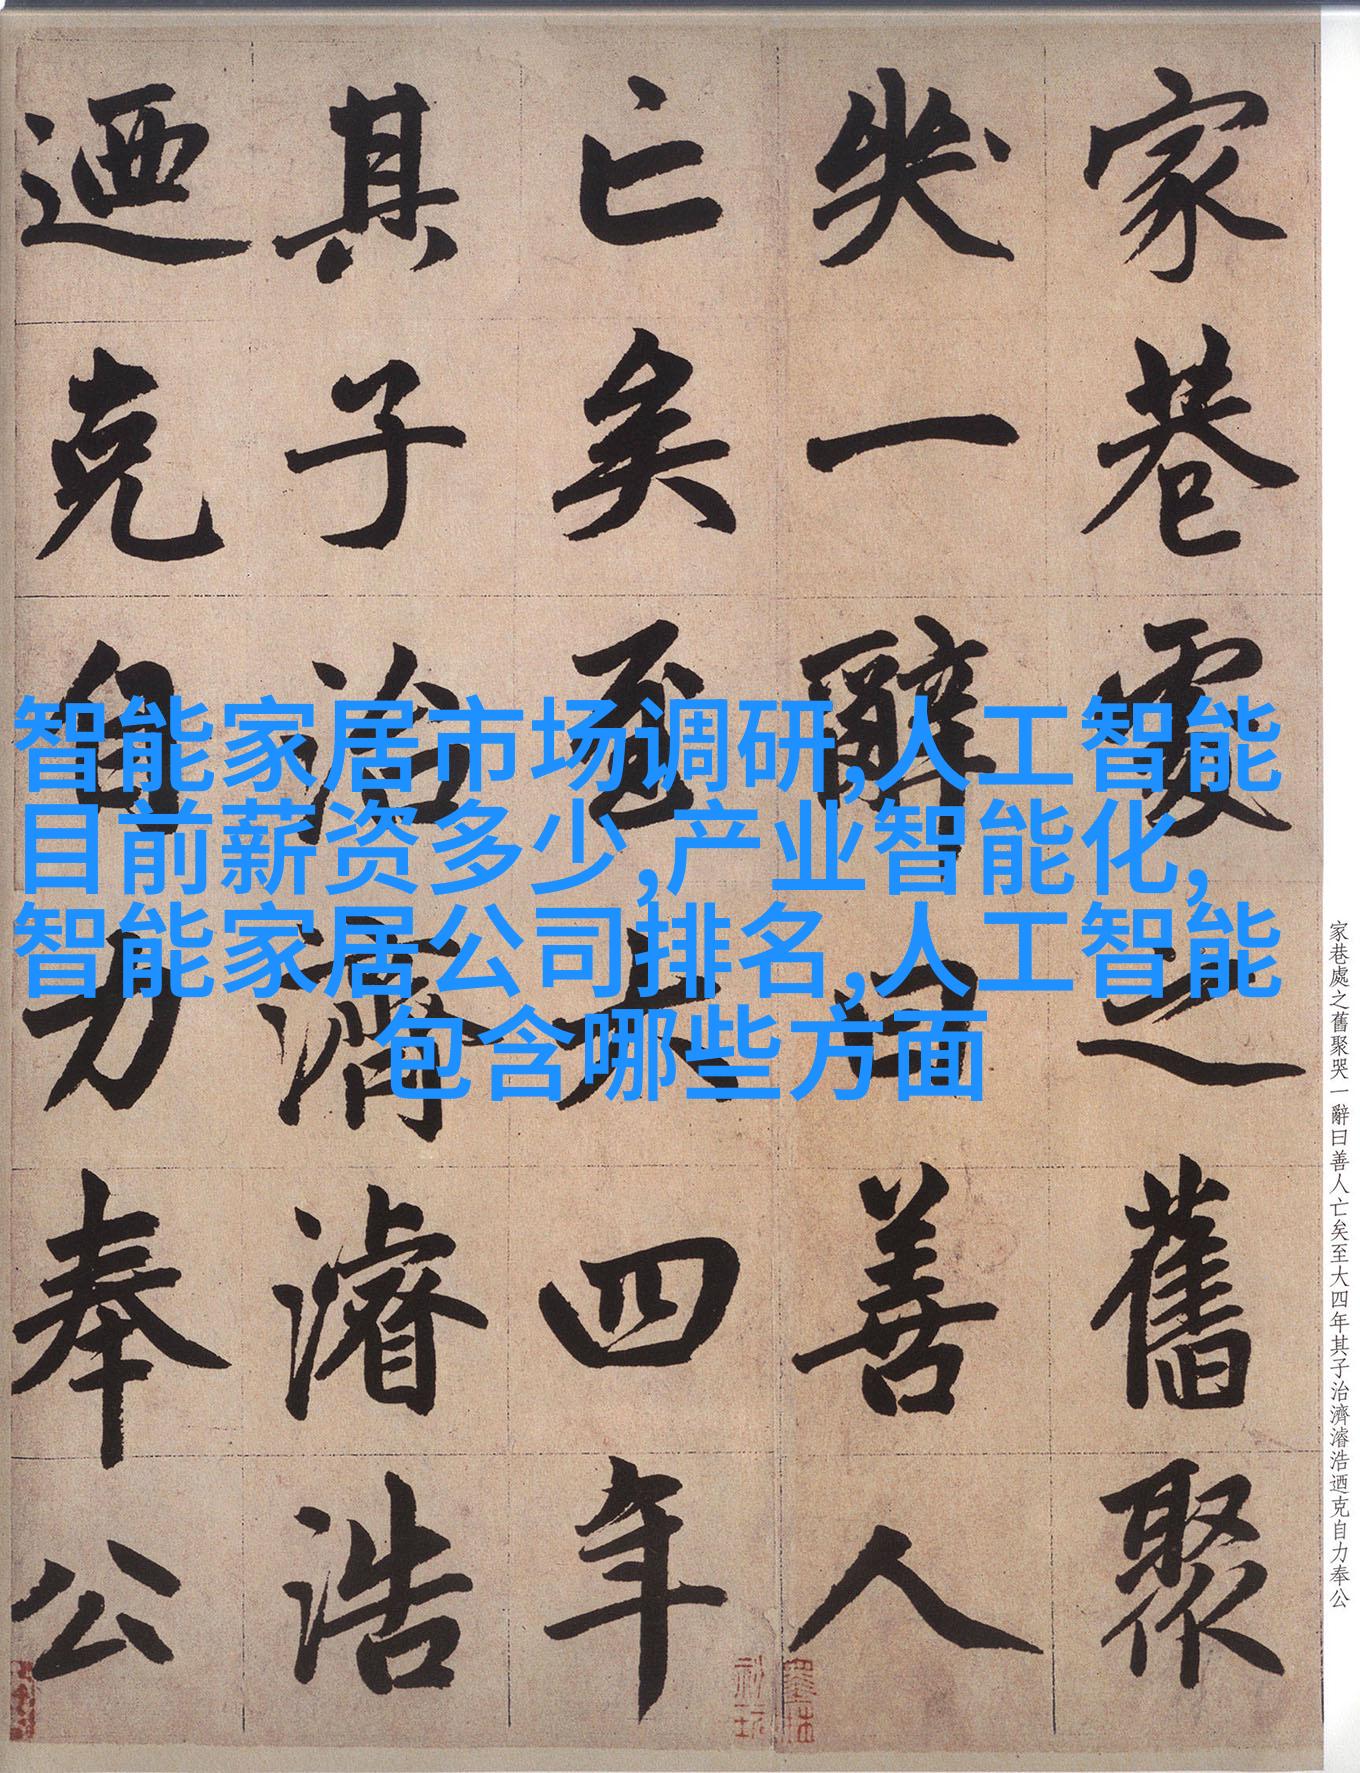 家巷處之舊聚
哭一辭曰善人
亡矣至大四年
其子治濟濬浩
迺克自力奉公
智能家居市场调研,人工智能
目前薪资多少,产业智能化,
智能家居公司排名,人工智能
包含哪些方面
家巷處之舊聚哭一辭曰善人亡矣至大四年其子治濟濬浩迺克自力奉公